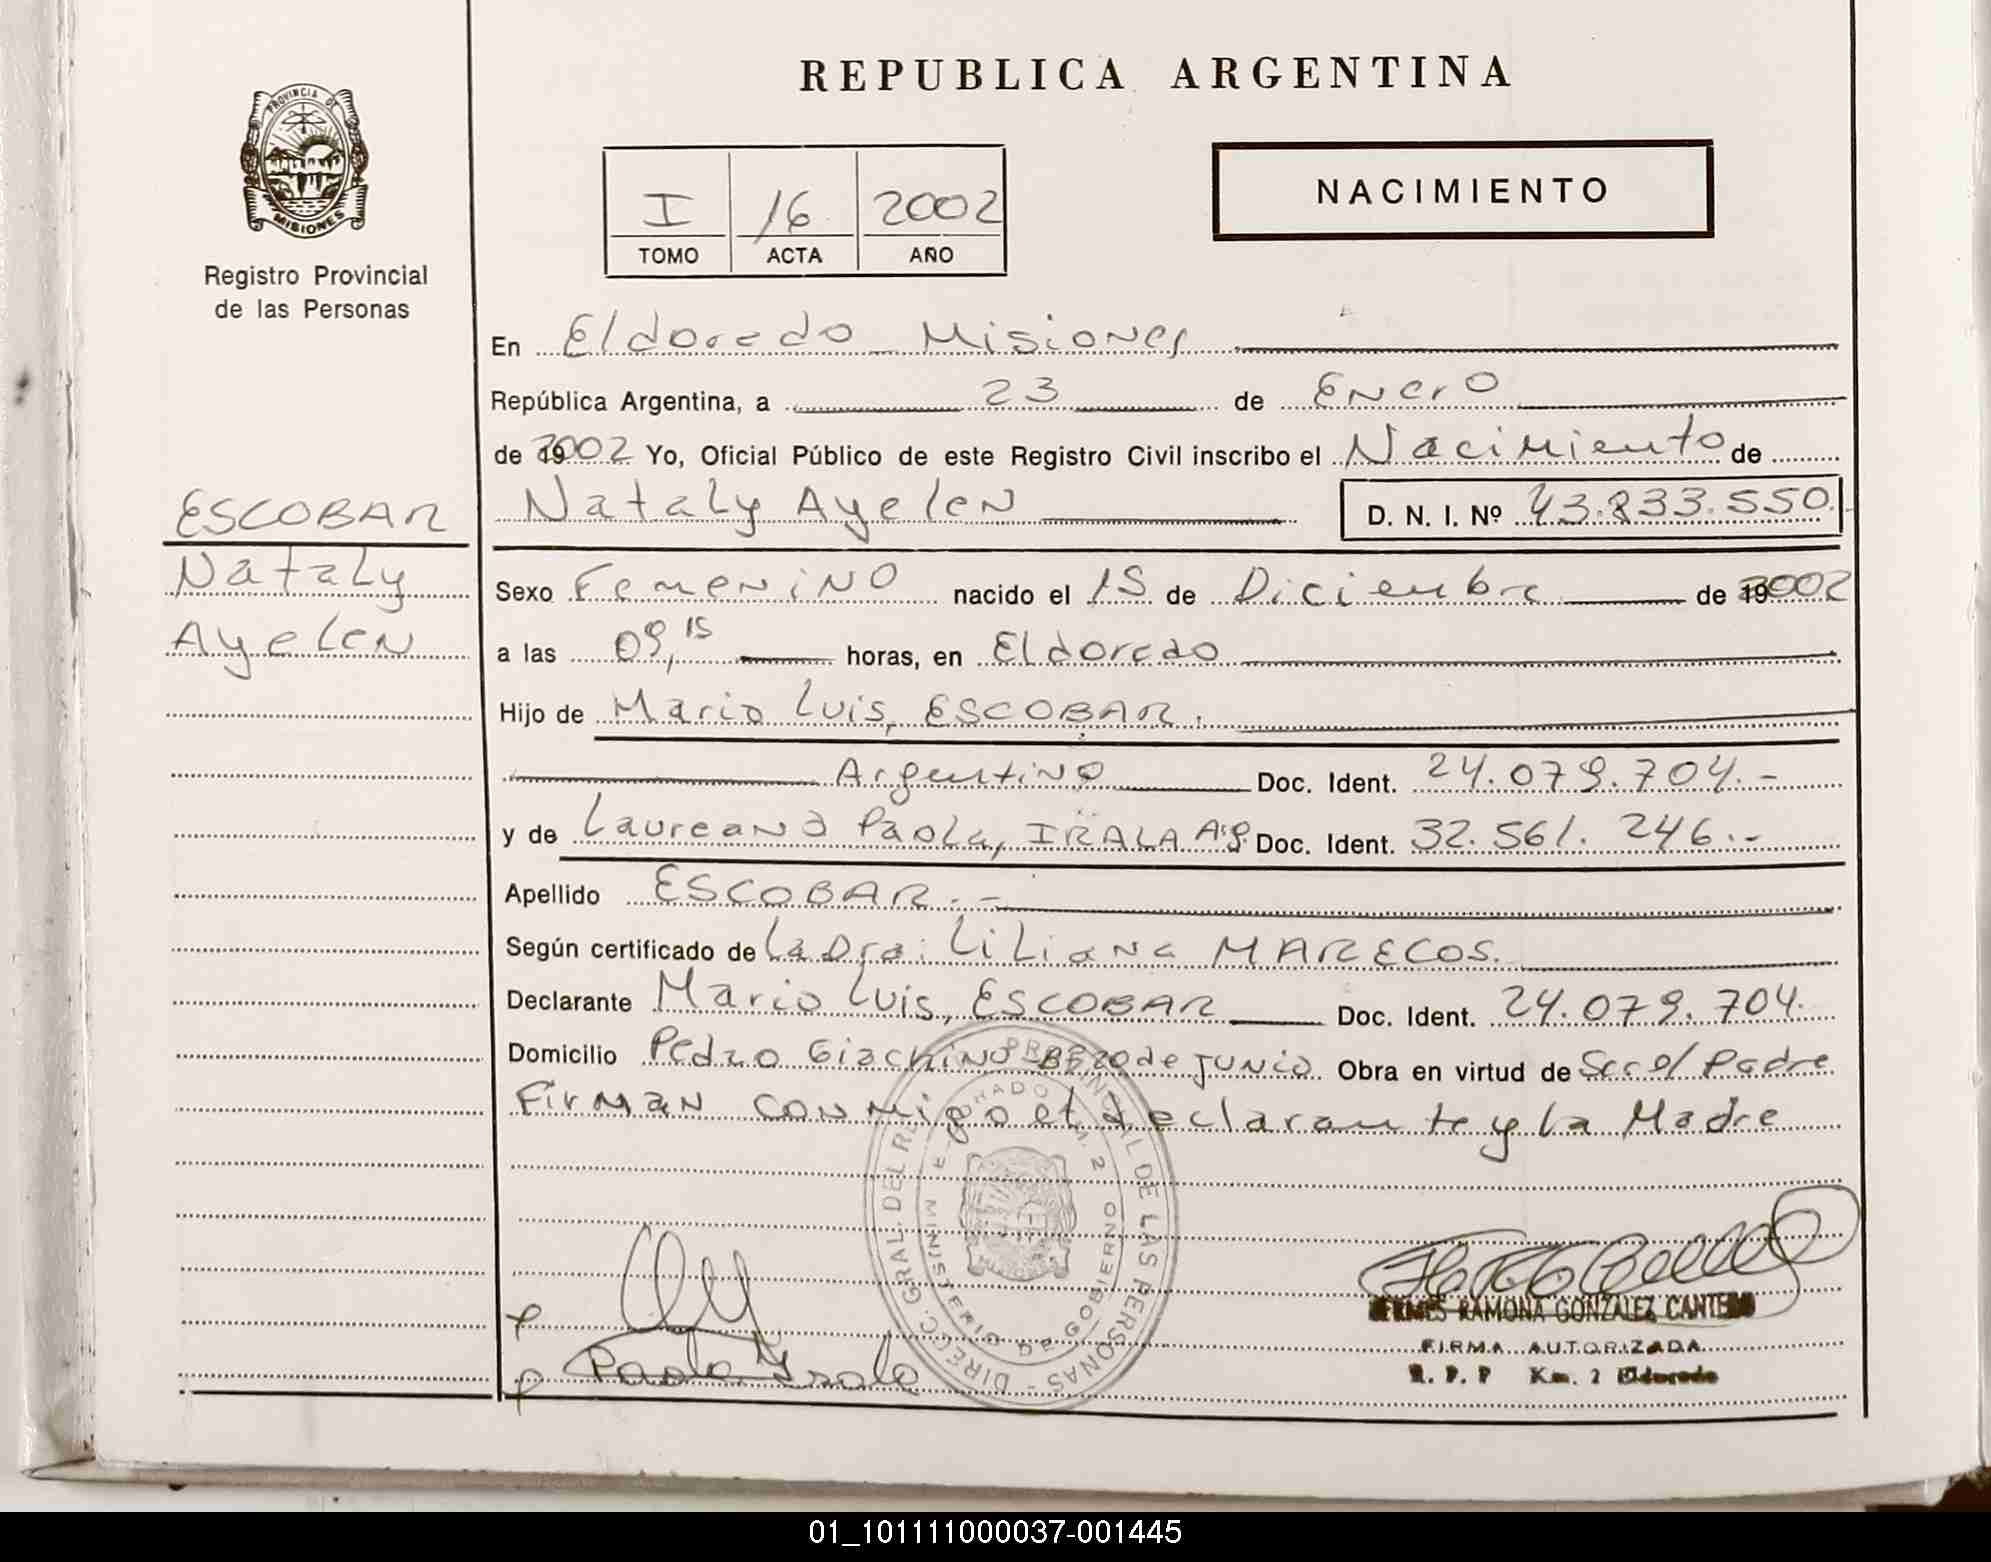 REPUBLICA ARGENTINA
PROVINCIA DE
MISIONES
Registro Provincial
de las Personas
I 16 2002
TOMO ACTA AÑO
NACIMIENTO
En Eldorado Misiones
República Argentina, a 23 de Enero
de 2002 Yo, Oficial Público de este Registro Civil inscribo el Nacimiento de
Nataly Ayelen D. N. I. Nº 43.833.550
ESCOBAR
Nataly
Ayelen
Sexo Femenino nacido el 15 de Diciembre de 2002
a las 09,15 horas, en Eldorado
Hijo de Mario Luis, ESCOBAR.
Argentino Doc. Ident. 24.079.704.-
y de Laureana Paola, IRALA Arg. Doc. Ident. 32.561.246.-
Apellido ESCOBAR.-
Según certificado de La Dra. Liliana MARECOS.
Declarante Mario Luis, ESCOBAR Doc. Ident. 24.079.704.
Domicilio Pedro Giachino Bº 20 de Junio Obra en virtud de Ser el Padre
Firman conmigo el declarante y la Madre
DIRECC. GRAL. DEL R. PROVINCIAL DE LAS PERSONAS
MINISTERIO DE GOBIERNO
Paola Irala
HERMES RAMONA GONZALEZ CANTERO
FIRMA AUTORIZADA
R. P. P Km. 2 Eldorado
01_101111000037-001445